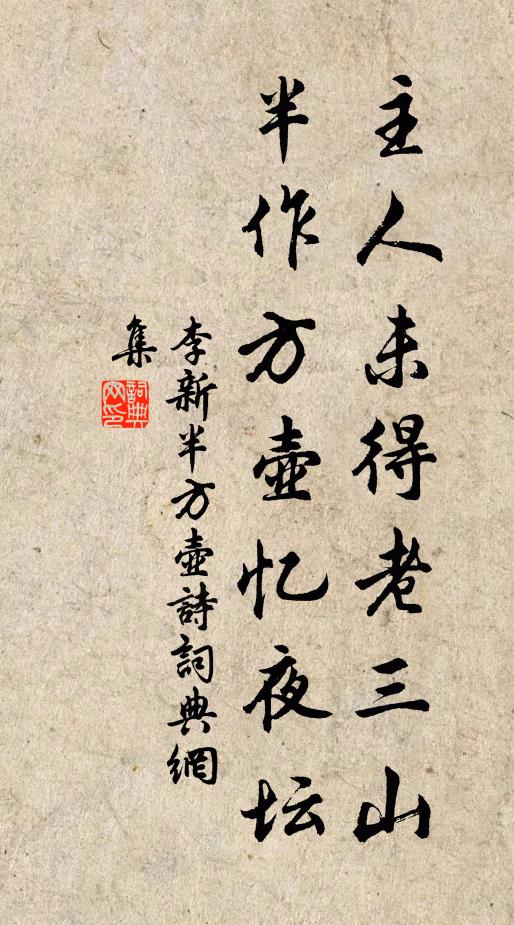 主人未得老三山
半作方壶忆夜坛
李新半方壶詩詞典網
集
詞典
网印